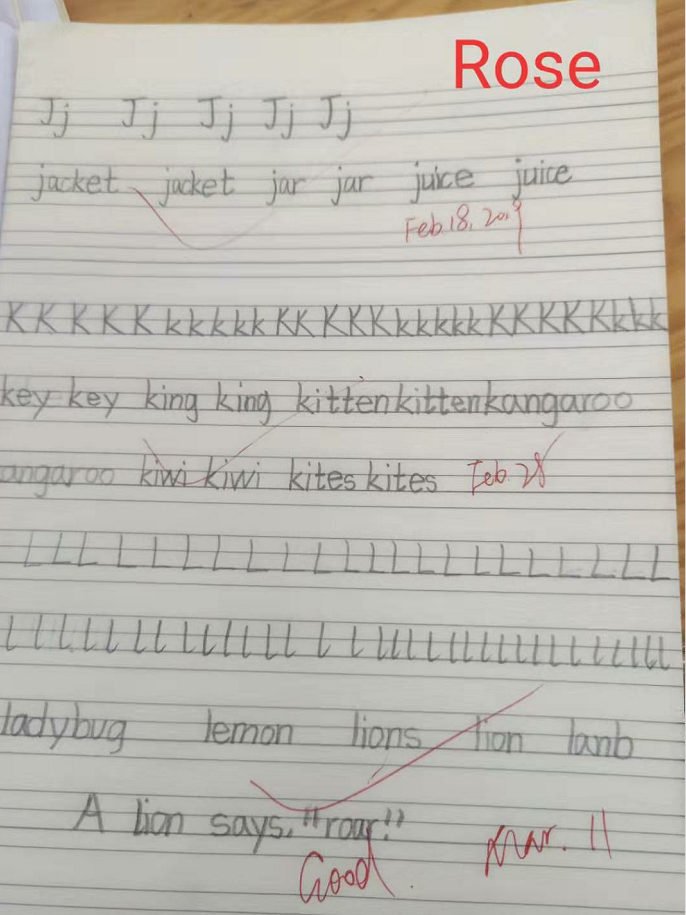 Rose
Jj Jj Jj Jj Jj
jacket jacket jar jar juice juice
Feb.18, 2019
K K K K K k k k k k K K K K K k k k k k K K K K K k k k
key key king king kitten kitten kangaroo
angaroo kiwi kiwi kites kites Feb. 28
L L L L L L L L L L L L L L L L L L L L L L
ladybug lemon lions lion lanb
A lion says, "roar!"
Good. Mar. 11